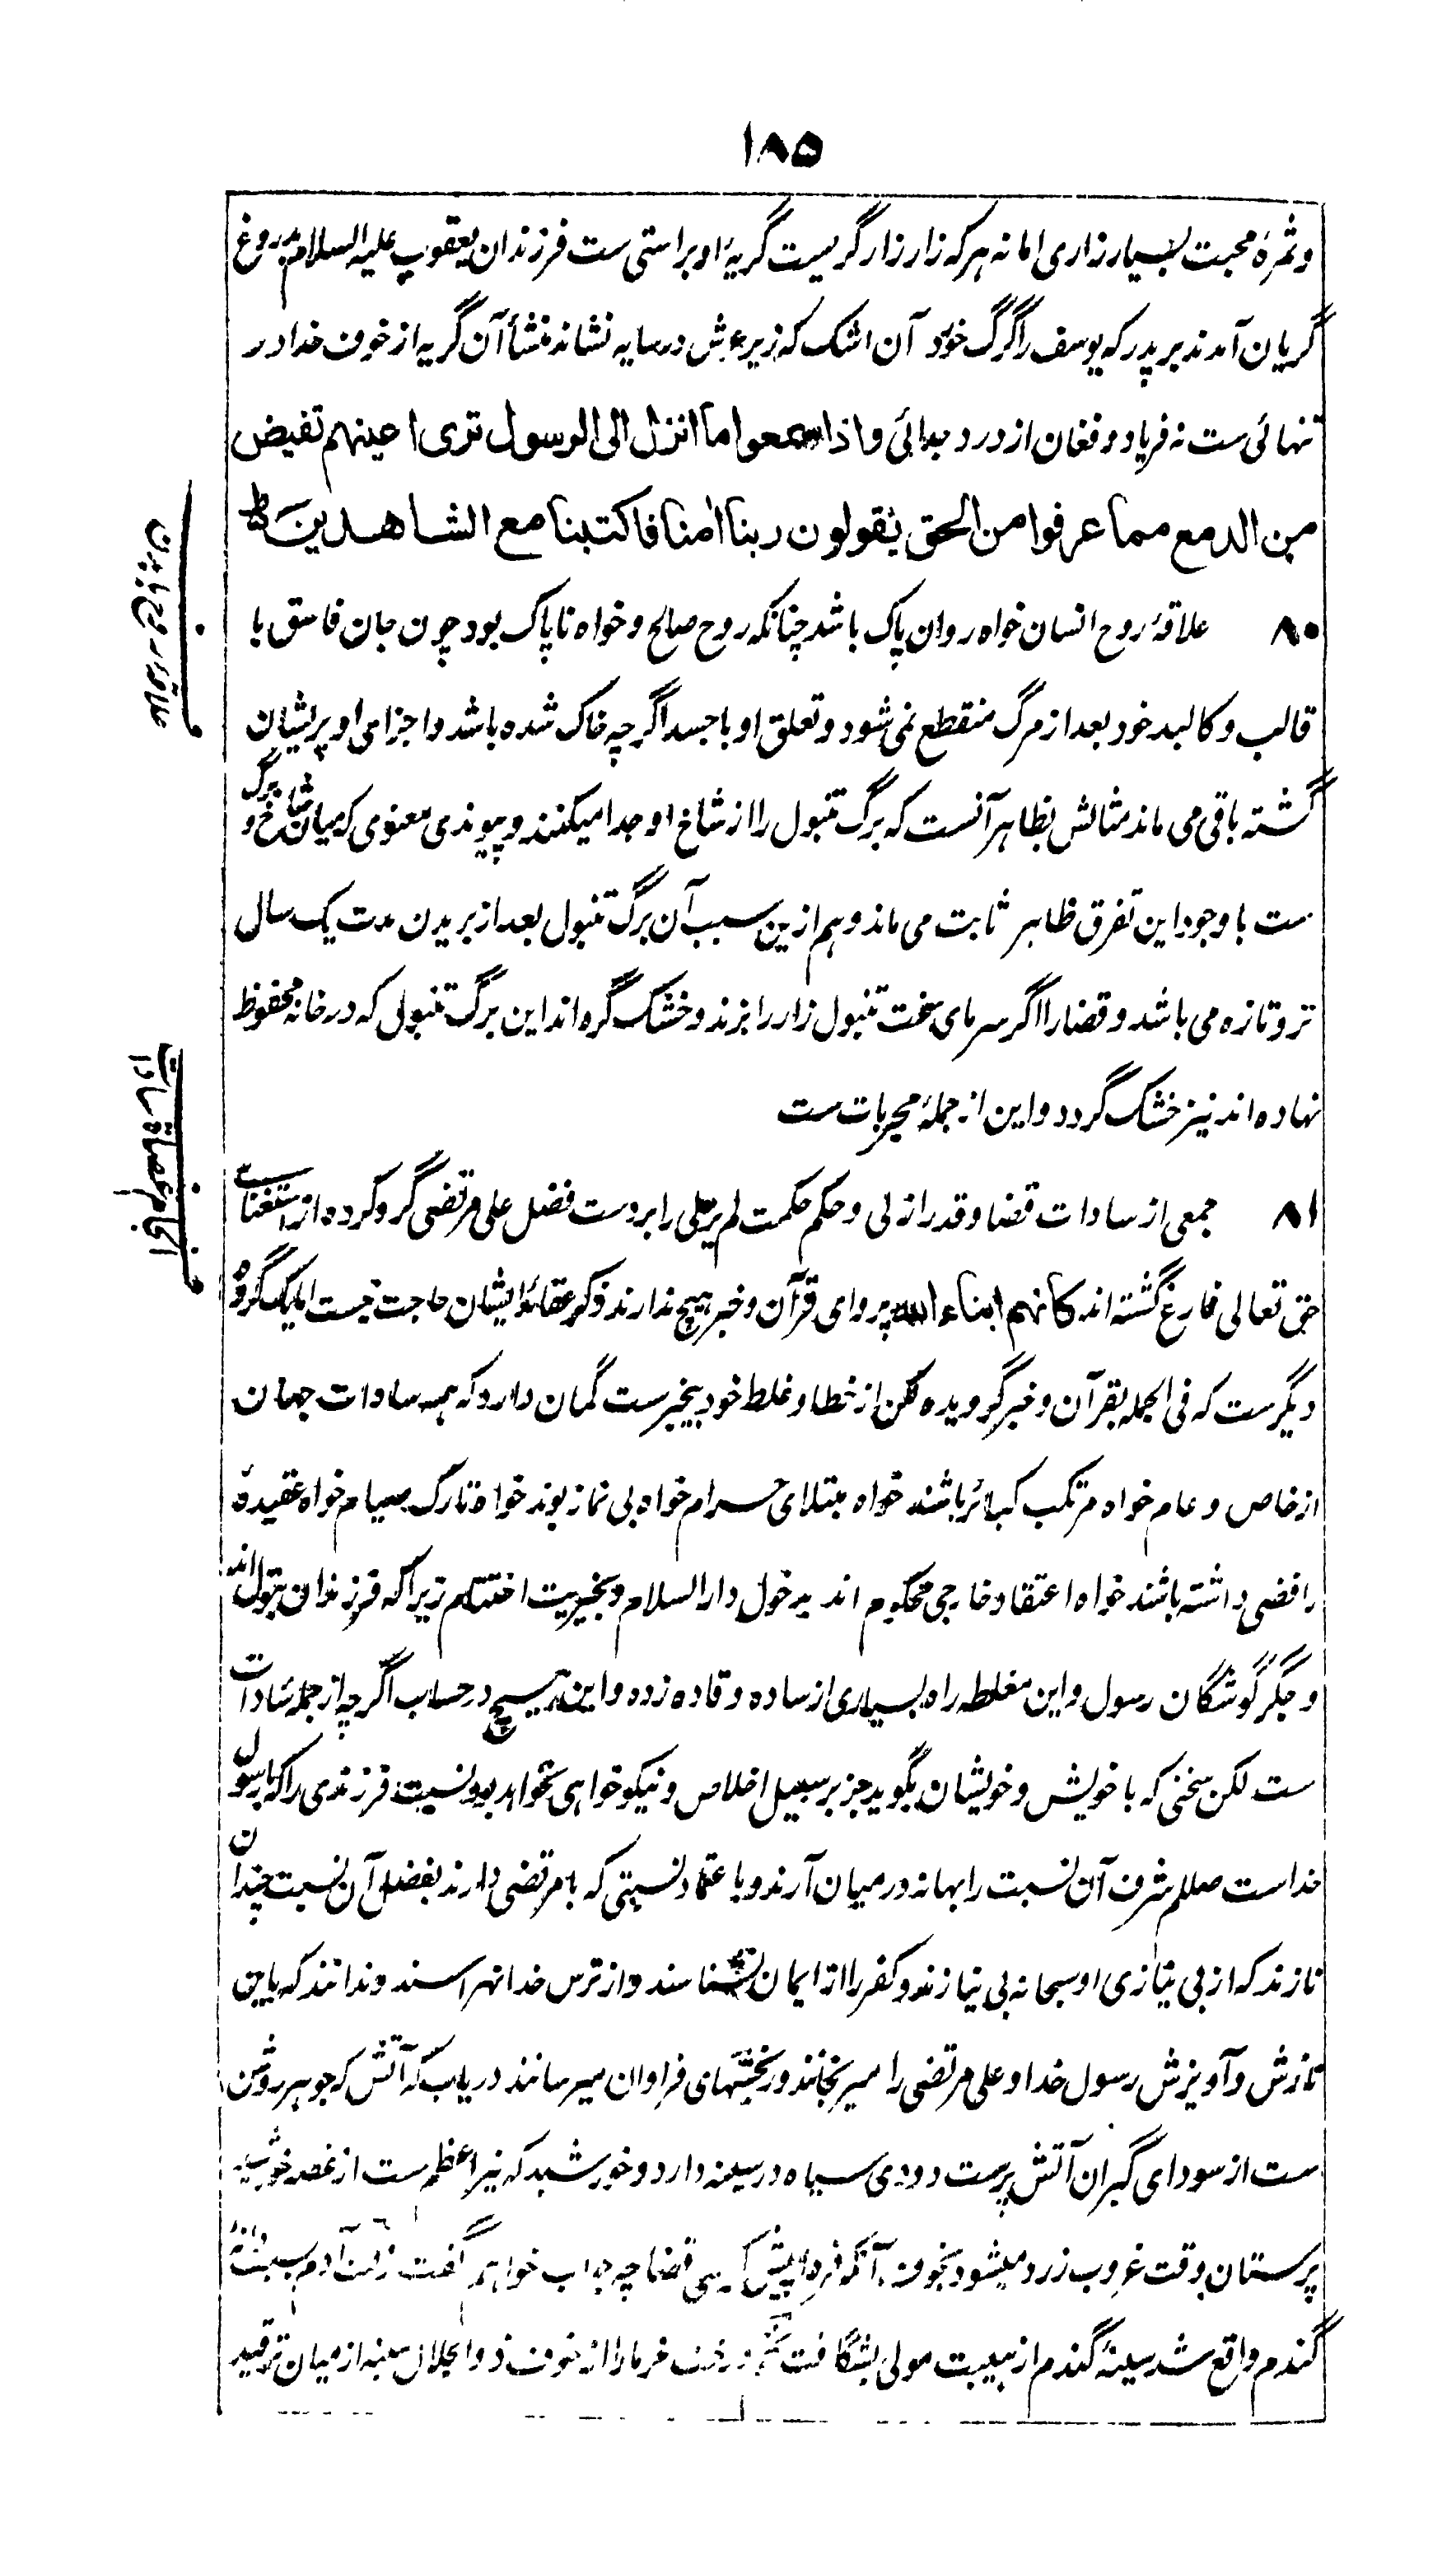 ۱۸۵
وثمرهٔ محبت بسیار زاری اما نه هر که زار زار گریست گریهٔ او براستی ست فرزندان یعقوب علیه السلام بدروغ
گریان آمدند بر پدر که یوسف را گرگ خورد آن اشک که زیر عرش در سایه نشاند منشأ آن گریه از خوف خدا در
تنهائی ست نه فریاد و فغان از درد جدائی واذا سمعوا ما انزل الی الرسول تری اعینهم تفیض
من الدمع مما عرفوا من الحق یقولون ربنا امنا فاکتبنا مع الشاهدین ط
۸۰ علاقهٔ روح انسان خواه روان پاک باشد چنانکه روح صالح و خواه ناپاک بود چون جان فاسق با
قالب و کالبد خود بعد از مرگ منقطع نمی شود و تعلق او با جسد اگرچه خاک شده باشد و اجزای او پریشان
گشته باقی می ماند مثالش بظاهر آنست که برگ تنبول را از شاخ او جدا میکنند و پیوندی معنوی که میان شاخ و برگ
ست با وجود این تفرق ظاهر ثابت می ماند و هم ازین سبب آن برگ تنبول بعد از بریدن مدت یک سال
تر و تازه می باشد و قضا را اگر سرمای سخت تنبول زار را بزند و خشک گرداند این برگ تنبولی که در خانه محفوظ
نهاده اند نیز خشک گردد و این از جملهٔ مجربات ست
۸۱ جمعی از سادات قضا و قدر ازلی و حکم حکمت لم یزلی را بر دست فضل علی مرتضی گرو کرده از استغنای
حق تعالی فارغ گشته اند کانهم ابناء الله پروای قرآن و خبر هیچ ندارند ذکر عقائد ایشان حاجت نیست لیکن گروه
دیگر ست که فی الجمله بقرآن و خبر گرویده لکن از خطا و غلط خود بیخبر ست گمان دارد که همه سادات جهان
از خاص و عام خواه مرتکب کبائر باشند خواه مبتلای حرام خواه بی نماز بوند خواه تارک صیام خواه عقیدهٔ
رافضی داشته باشند خواه اعتقاد خارجی محکوم اند بدخول دار السلام و بخیریت اختتام زیرا که فرزندان بتول اند
و جگر گوشگان رسول و این مغلطه راه بسیاری از ساده و قاده زده و این هیچ در حساب اگرچه از جملهٔ سادات
ست لکن سخنی که با خویش و خویشان بگوید جز بر سبیل اخلاص و نیکو خواهی نخواهد بود نسبت فرزندی را که با رسول
خداست صللم شرف آن نسبت را بهانه در میان آرند و با عتماد نسبتی که با مرتضی دارند بفضل آن نسبت چندان
نازند که از بی نیازی او سبحانه بی نیازند و کفر را از ایمان نشناسند و از ترس خدا نهراسند و ندانند که باین
نازش و آویزش رسول خدا و علی مرتضی را میرنجانند و رنجشهای فراوان میرسانند دریاب که آتش که جوهر روشن
ست از سودای گبران آتش پرست دودی سیاه در سینه دارد و خورشید که نیر اعظم ست از غصه خورشید
پرستان بوقت غروب زرد میشود بخوف آنکه فردا پیش قضا چه جواب خواهم گفت زلت آدم بسبب دانهٔ
گندم واقع شد سینهٔ گندم از هیبت مولی بشگافت درخت خرما را از خوف ذو الجلال سینه از میان ترقید
علاقهٔ روح با بدن